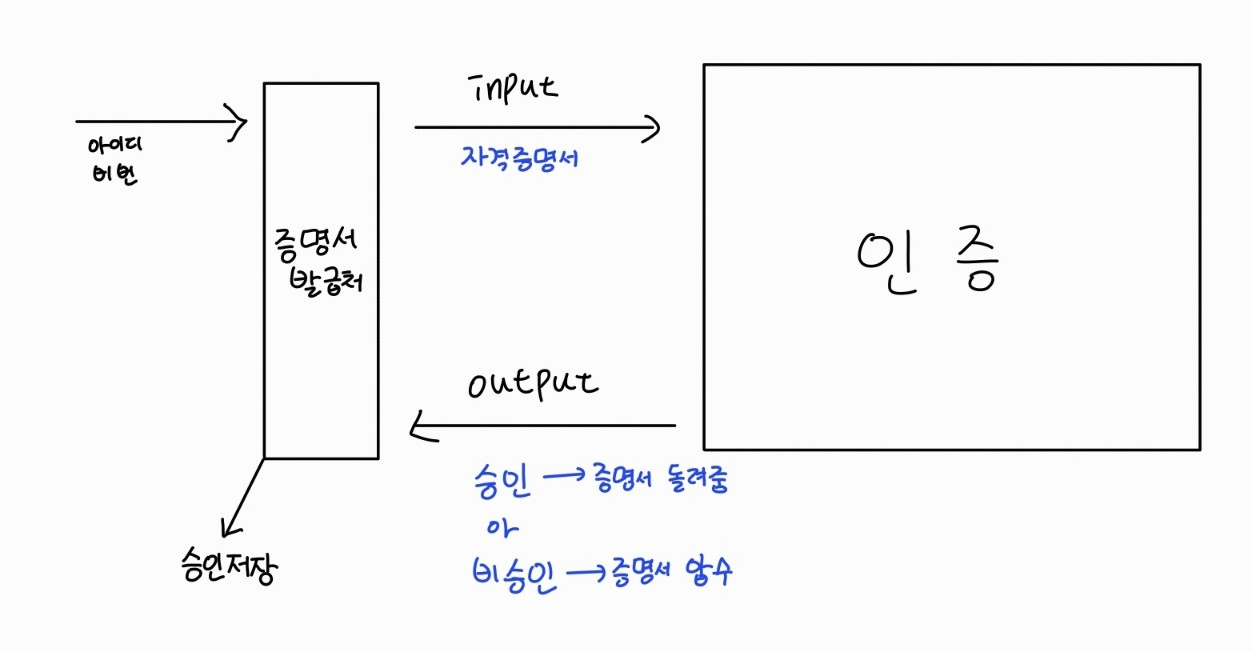 아이디
비번
증명서
발급처
input
자격증명서
인증
output
승인 → 증명서 돌려줌
아
비승인 → 증명서 압수
승인저장